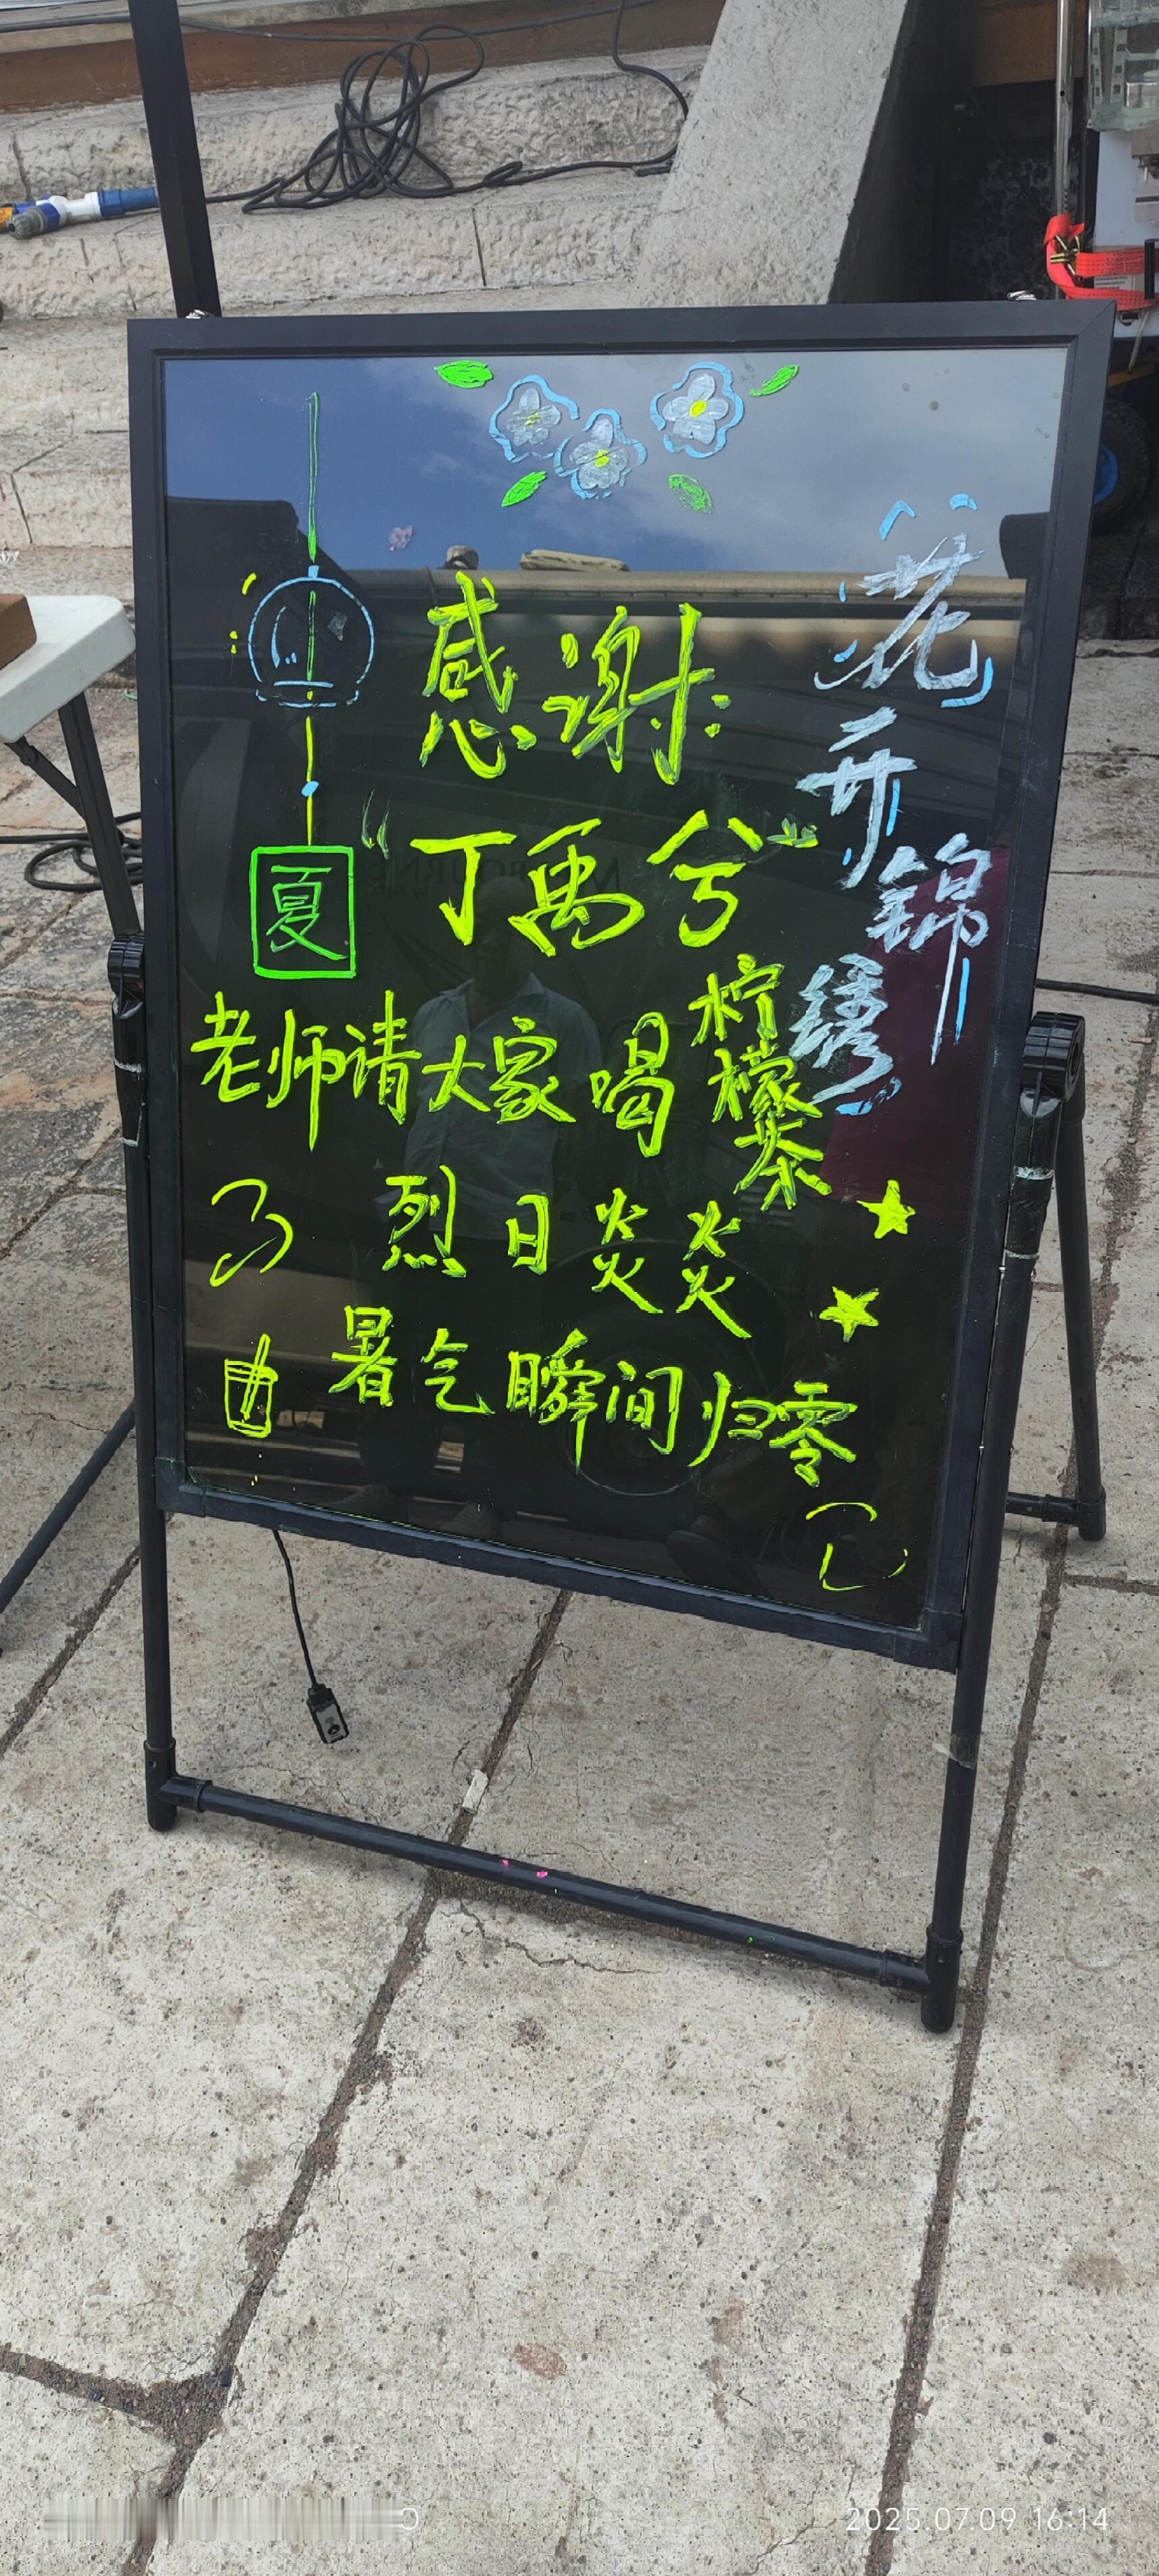 花开锦绣
感谢
“丁禹兮”
夏
老师请大家喝柠檬茶
烈日炎炎
暑气瞬间归零
2025.07.09 16:14